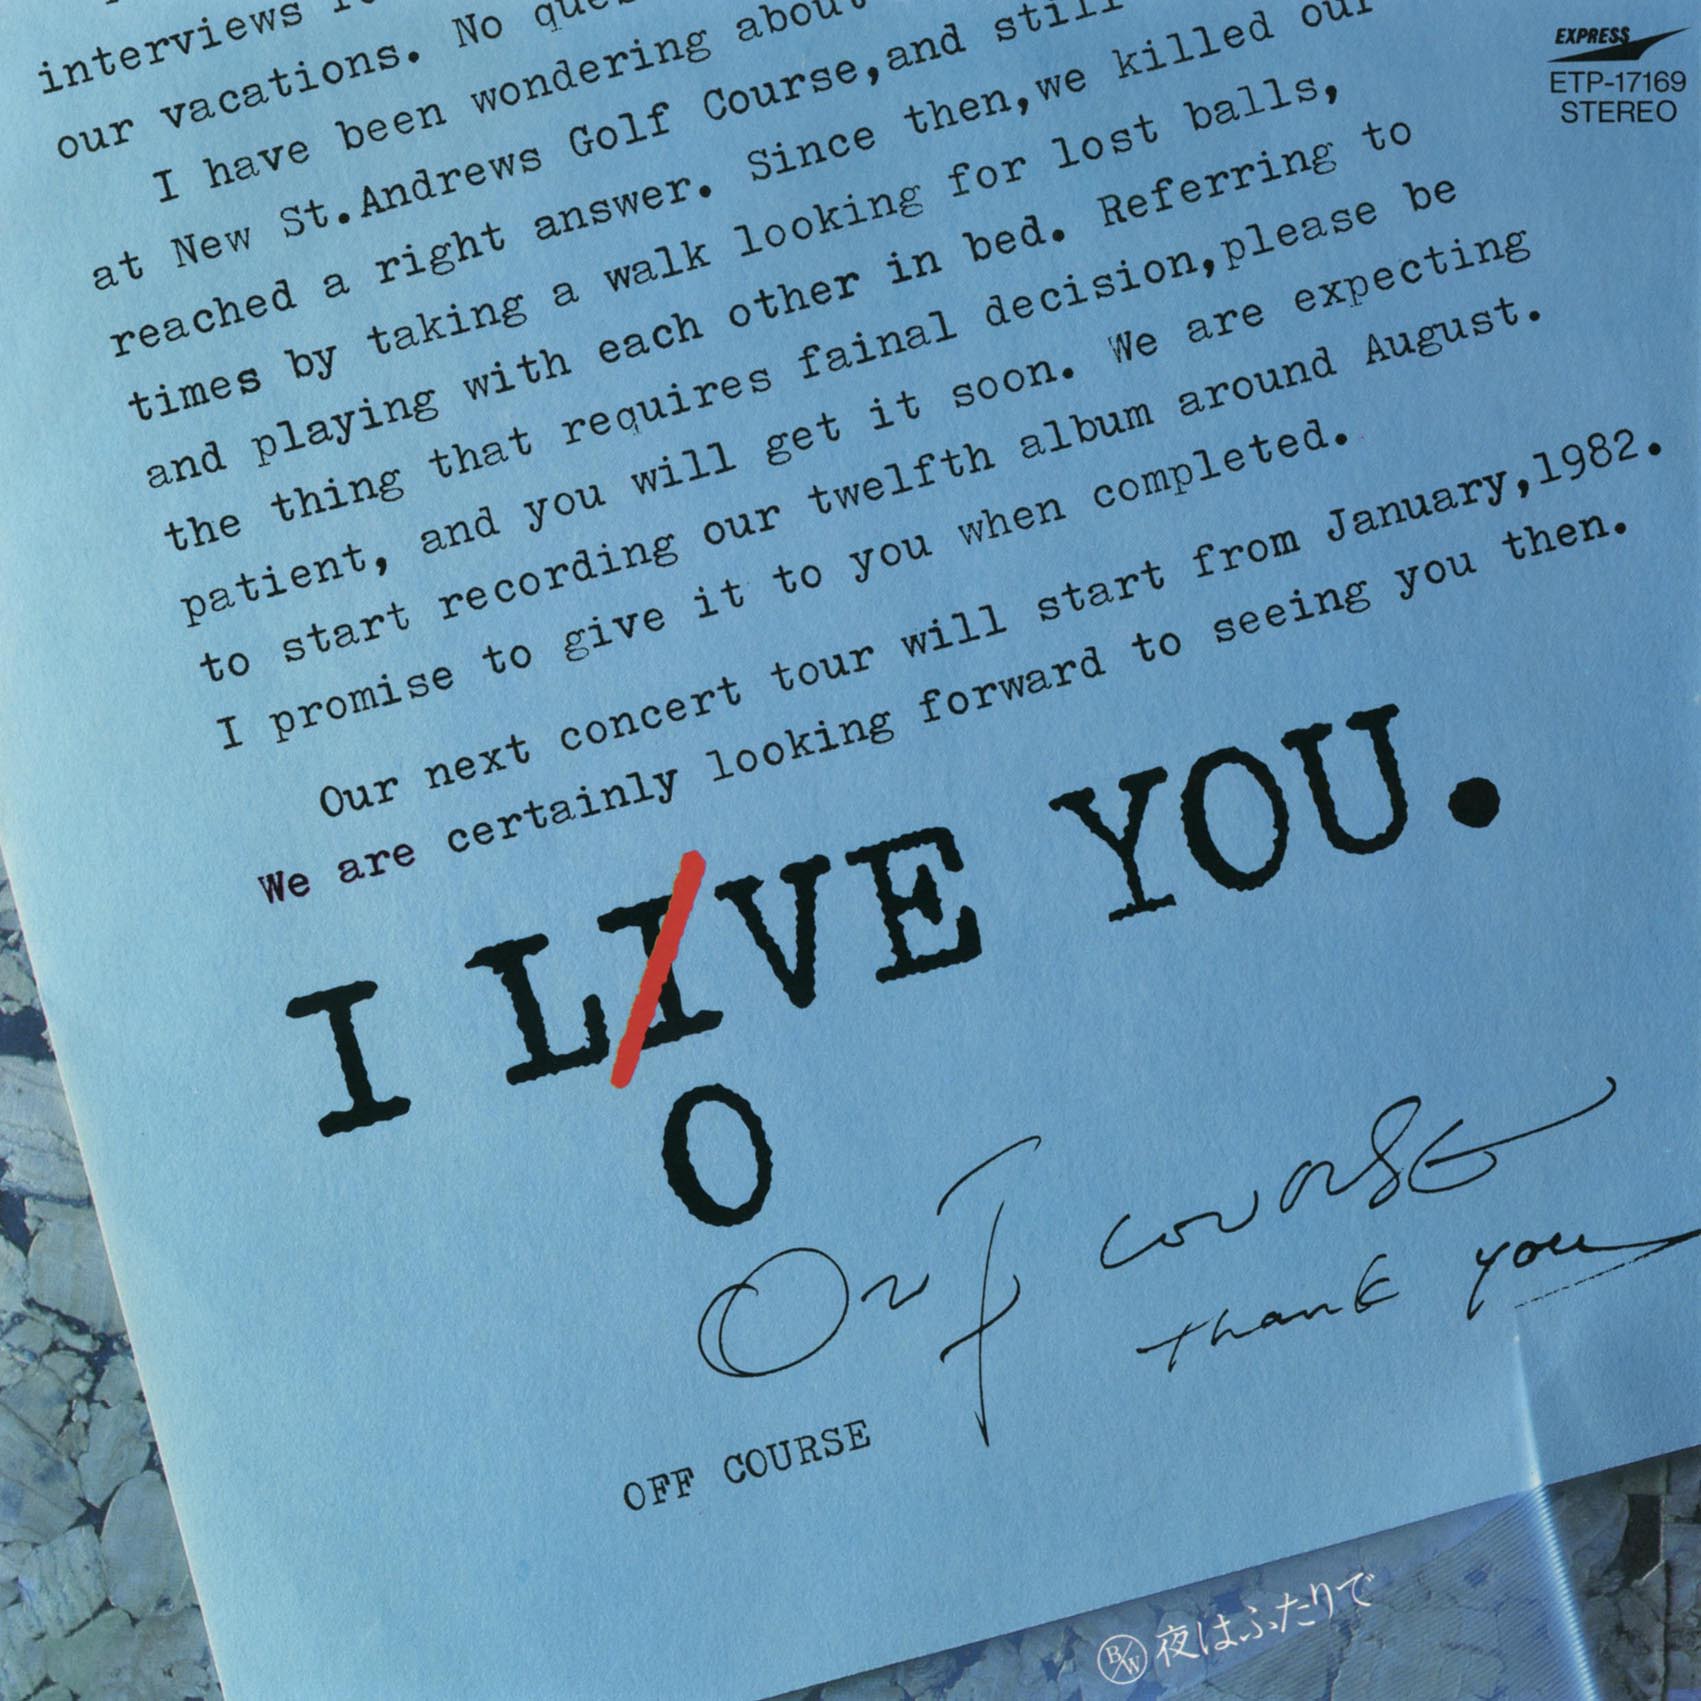 interviews
our vacations. No
I have been wondering about
at New St.Andrews Golf Course,and still
reached a right answer. Since then,we killed our
times by taking a walk looking for lost balls,
and playing with each other in bed. Referring to
the thing that requires fainal decision,please be
patient, and you will get it soon. We are expecting
to start recording our twelfth album around August.
I promise to give it to you when completed.
Our next concert tour will start from January,1982.
We are certainly looking forward to seeing you then.
I LIVE YOU.
O
OFF COURSE
Thank you
OFF COURSE
EXPRESS
ETP-17169
STEREO
B/W 夜はふたりで